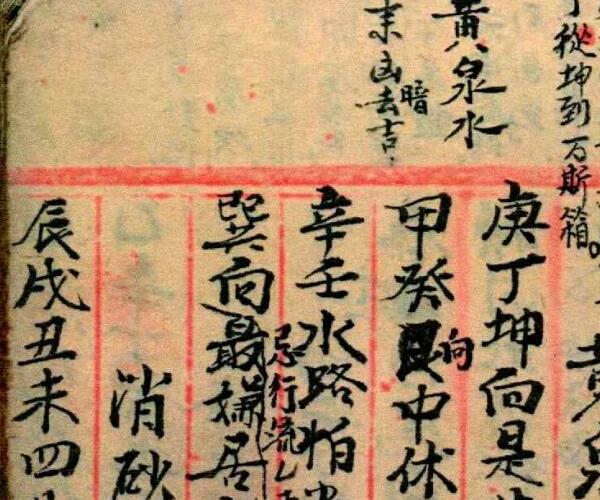 丁從坤到万斯箱。
黃泉水
来凶去吉
暗
黃泉
庚丁坤向是
甲癸艮向中休
辛壬水路怕
忌行流
巽向最嫌居
消砂
辰戌丑未四